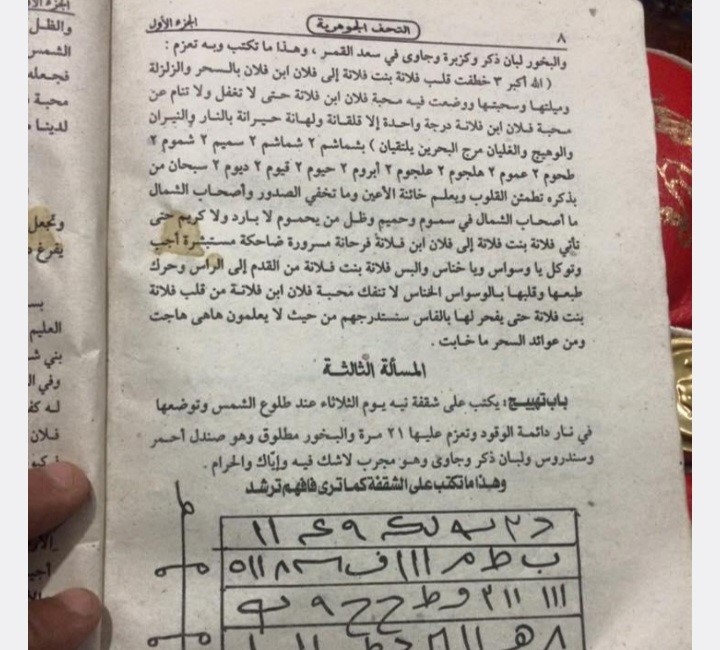 ٨ التحف الجوهرية الجزء الأول
والبخور لبان ذكر وكزبرة وجاوى في سعد القمر ، وهذا ما تكتب وبه تعزم :
( الله أكبر ٣ خطفت قلب فلانة بنت فلانة إلى فلان ابن فلان بالسحر والزلزلة
وميلتها وسحبتها ووضعت فيه محبة فلان ابن فلانة حتى لا تغفل ولا تنام عن
محبة فلان ابن فلانة درجة واحدة إلا قلقانة ولهانة حيرانة بالنار والنيران
والوهيج والغليان مرج البحرين يلتقيان ) بشماشم ٢ شماشم ٢ سميم ٢ شموم ٢
طحوم ٢ عموم ٢ هلجوم ٢ علجوم ٢ أبروم ٢ حيوم ٢ قيوم ٢ ديوم ٢ سبحان من
بذكره تطمئن القلوب ويعلم خائنة الأعين وما تخفي الصدور وأصحاب الشمال
ما أصحاب الشمال في سموم وحميم وظل من يحموم لا بارد ولا كريم حتى
تأتي فلانة بنت فلانة إلى فلان ابن فلانة فرحانة مسرورة ضاحكة مستبشرة أجب
وتوكل يا وسواس ويا خناس والبس فلانة بنت فلانة من القدم إلى الراس وحرك
طبعها وقلبها بالوسواس الخناس لا تنفك محبة فلان ابن فلانة من قلب فلانة
بنت فلانة حتى يفحر لها بالفاس سنستدرجهم من حيث لا يعلمون هاهى هاجت
ومن عوائد السحر ما خابت .
المسألة الثالثة
باب تهييج : يكتب على شقفة نيه يوم الثلاثاء عند طلوع الشمس وتوضعها
في نار دائمة الوقود وتعزم عليها ٢١ مرة والبخور مطلوق وهو صندل أحمر
وسندروس ولبان ذكر وجاوى وهو مجرب لاشك فيه وإياك والحرام .
وهذا ما تكتب على الشقفة كما ترى فافهم ترشد